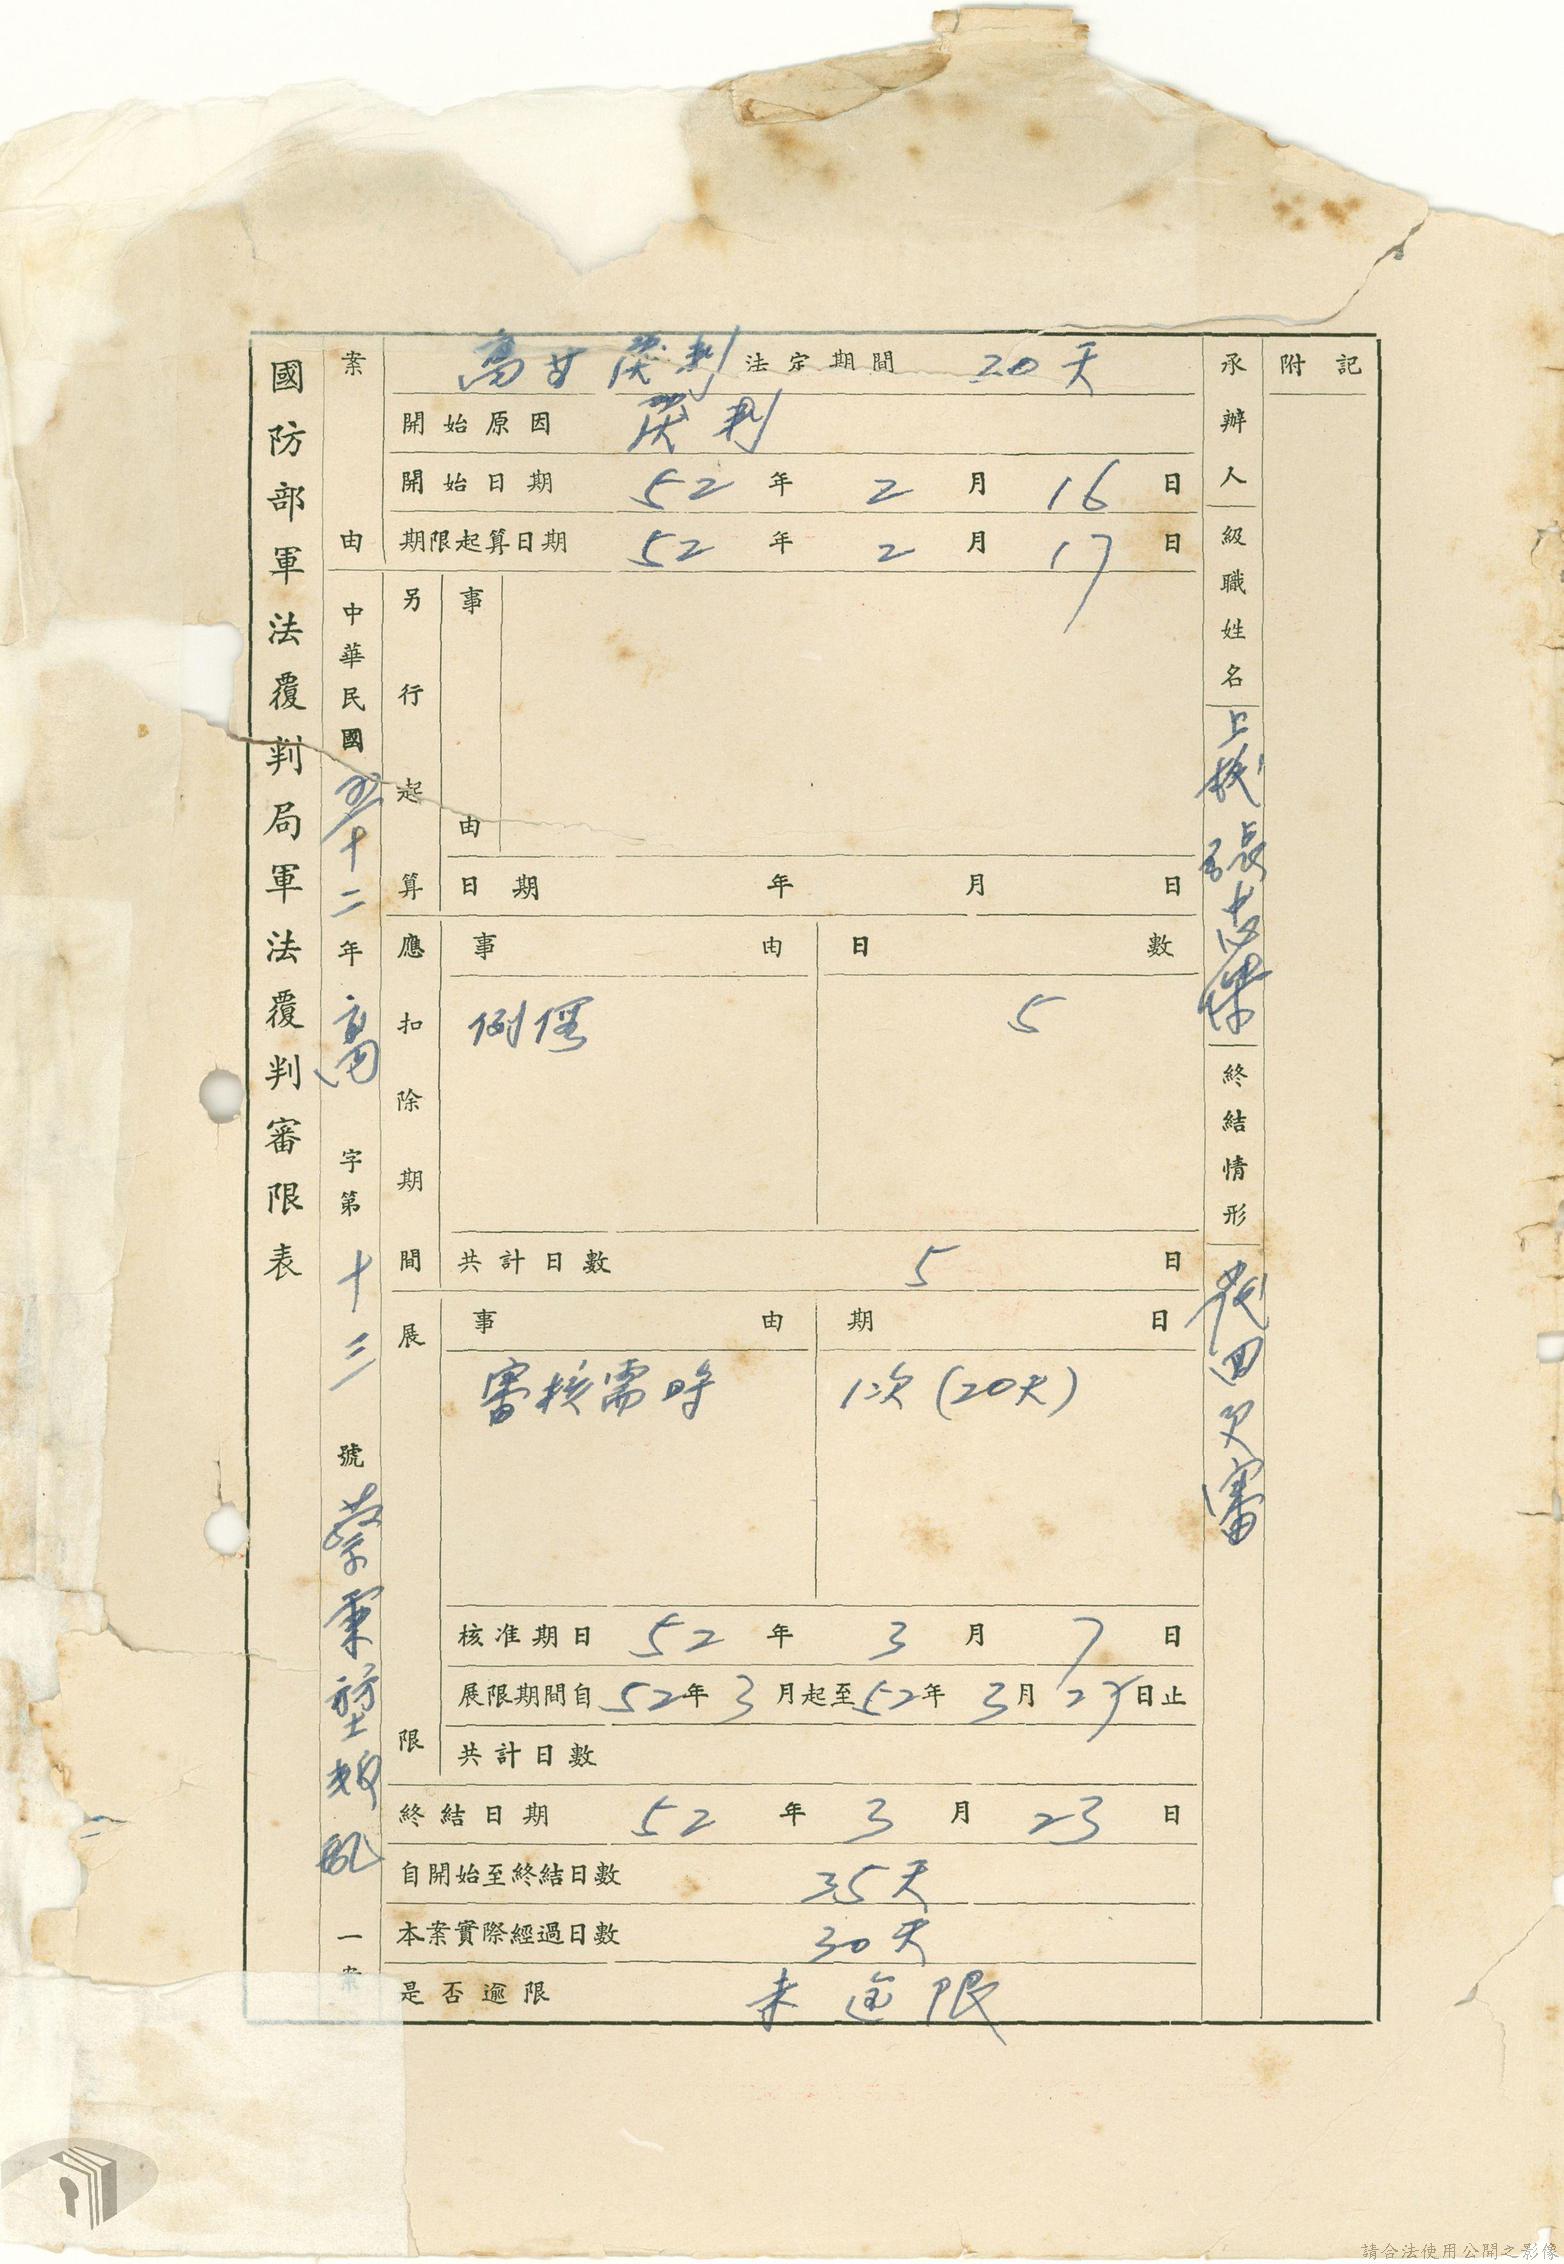 國防部軍法覆判局軍法覆判審限表
中華民國五十二年高字第十三號蔡秉堃叛亂一案
案由
法定期間 20天
開始原因 覆判
開始日期 52年2月16日
期限起算日期 52年2月17日
另行起算
事由
日期 年 月 日
應扣除期間
事由 日數
例假 5
共計日數 5日
展限
事由 期日
審核需時 1次(20天)
核准期日 52年3月7日
展限期間自52年3月起至52年3月27日止
共計日數
終結日期 52年3月23日
自開始至終結日數 35天
本案實際經過日數 30天
是否逾限 未逾限
承辦人級職姓名 上校 張志傑
終結情形 發回更審
附記
請合法使用公開之影像